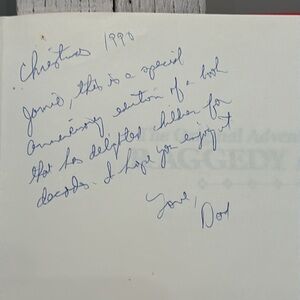 Christmas 1990
Jamie, this is a special
anniversary edition of a book
that has delighted children for
decades. I hope you enjoy it
Love,
Dad
The Original Adven
RAGGEDY